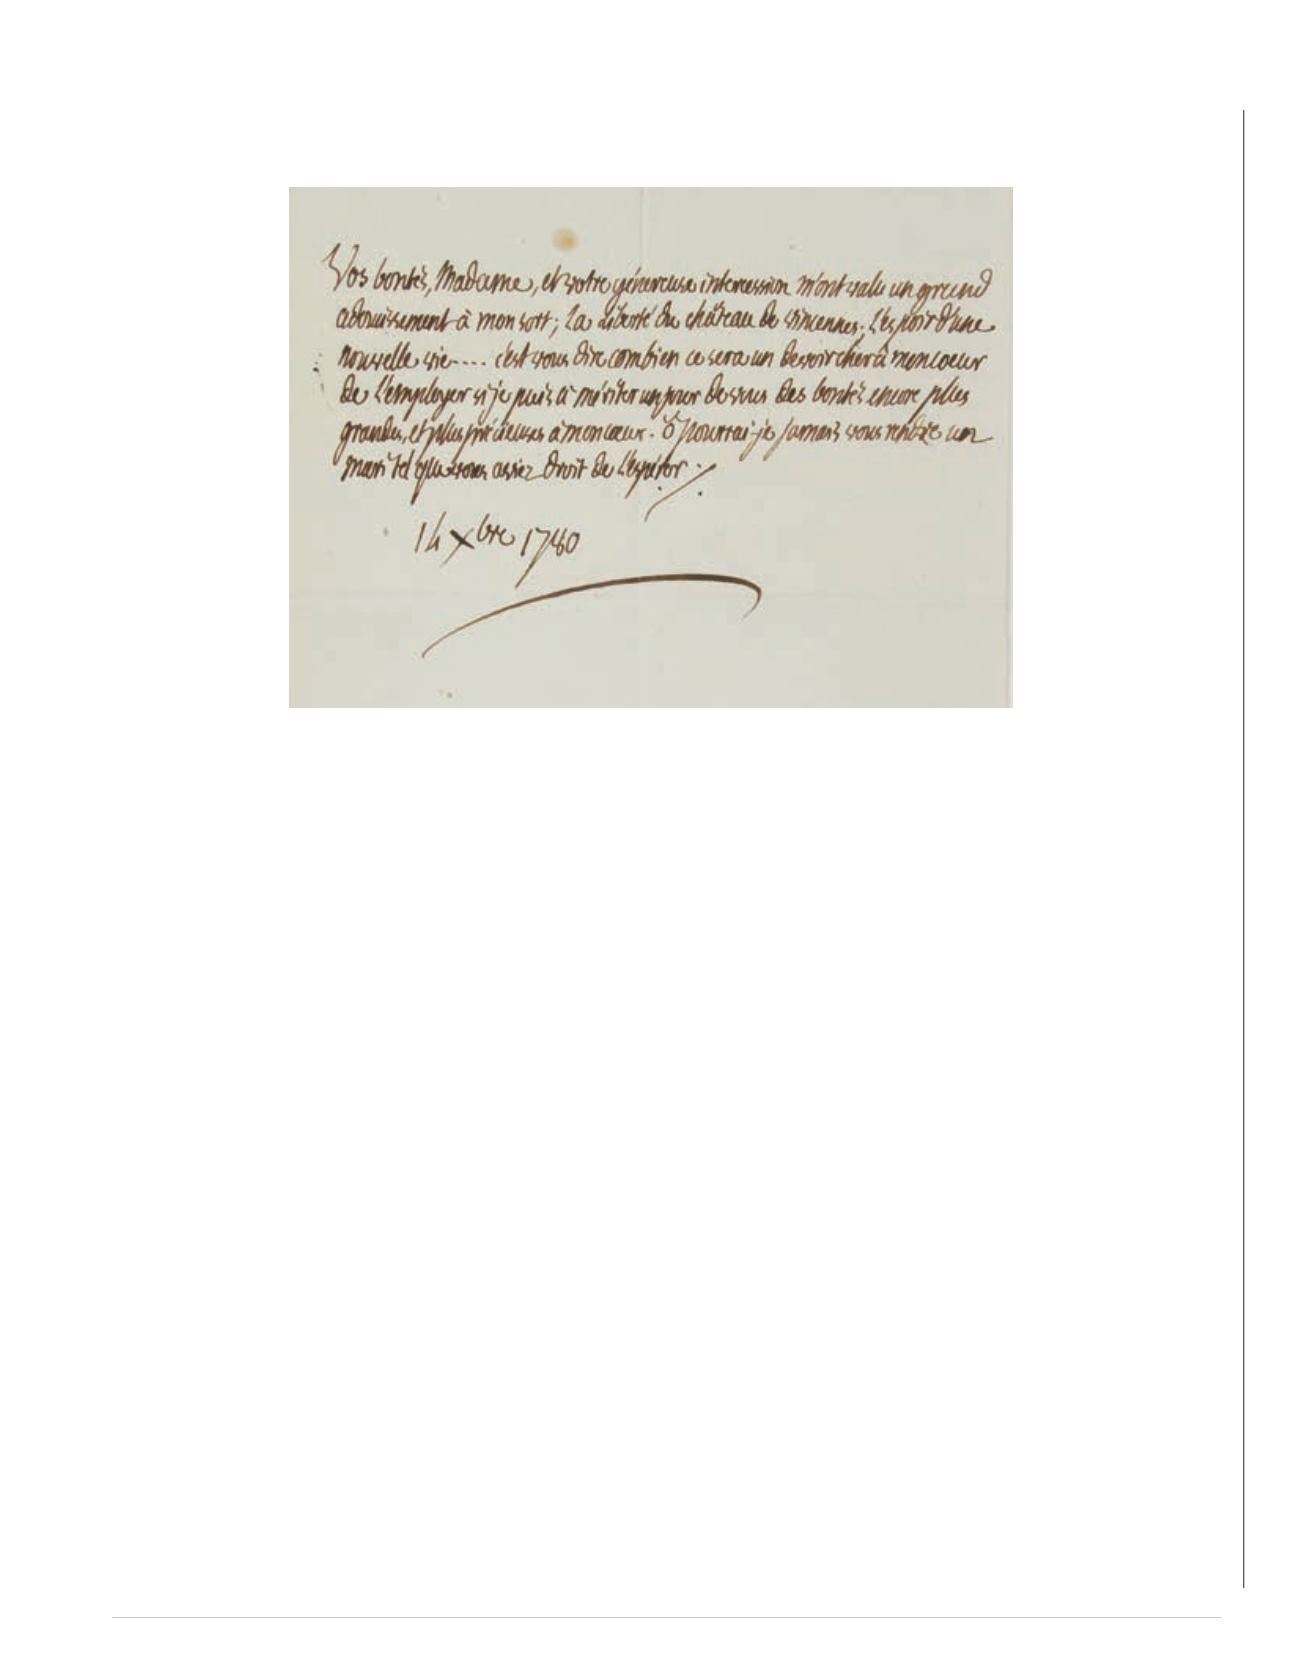 Vos bontés, Madame, et votre généreuse intercession m'ont valu un grand
adoucissement à mon sort; La Liberté du château de vincennes; L'espoir d'une
nouvelle vie.... c'est vous dire combien ce sera un devoir cher à mon coeur
de L'employer si je puis à mériter un jour de vous des bontés encore plus
grandes, et plus précieuses à mon coeur. ô pourrai-je jamais vous rendre un
mari tel que vous aviez droit de L'espérer
14 Xbre 1780